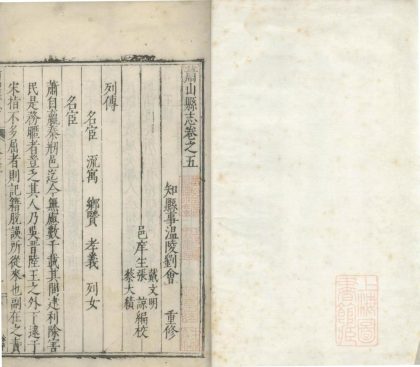 蕭山縣志卷之五
知縣事溫陵劉會 重修
戴文明
邑庠生張 諒編校
蔡大積
列傳
名宦 流寓 鄉賢 孝義 列女
名宦
蕭自嬴秦剏邑迄今無慮數千載其間建利除害
民是務暱者豈乏其人乃吳晉陸王之外下逮于
宋指不多屈者則記籍脫謨所從來也副在之責
上海圖書館藏